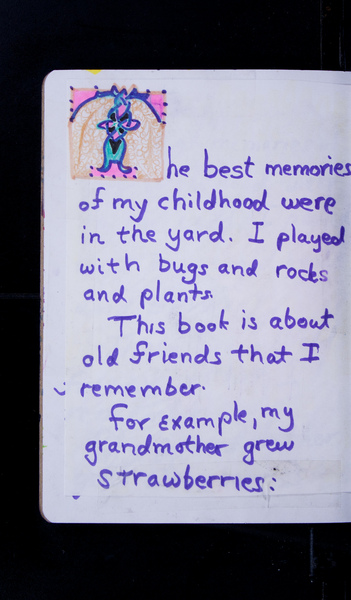 The best memories
of my childhood were
in the yard. I played
with bugs and rocks
and plants.
This book is about
old friends that I
remember.
For example, my
grandmother grew
strawberries: